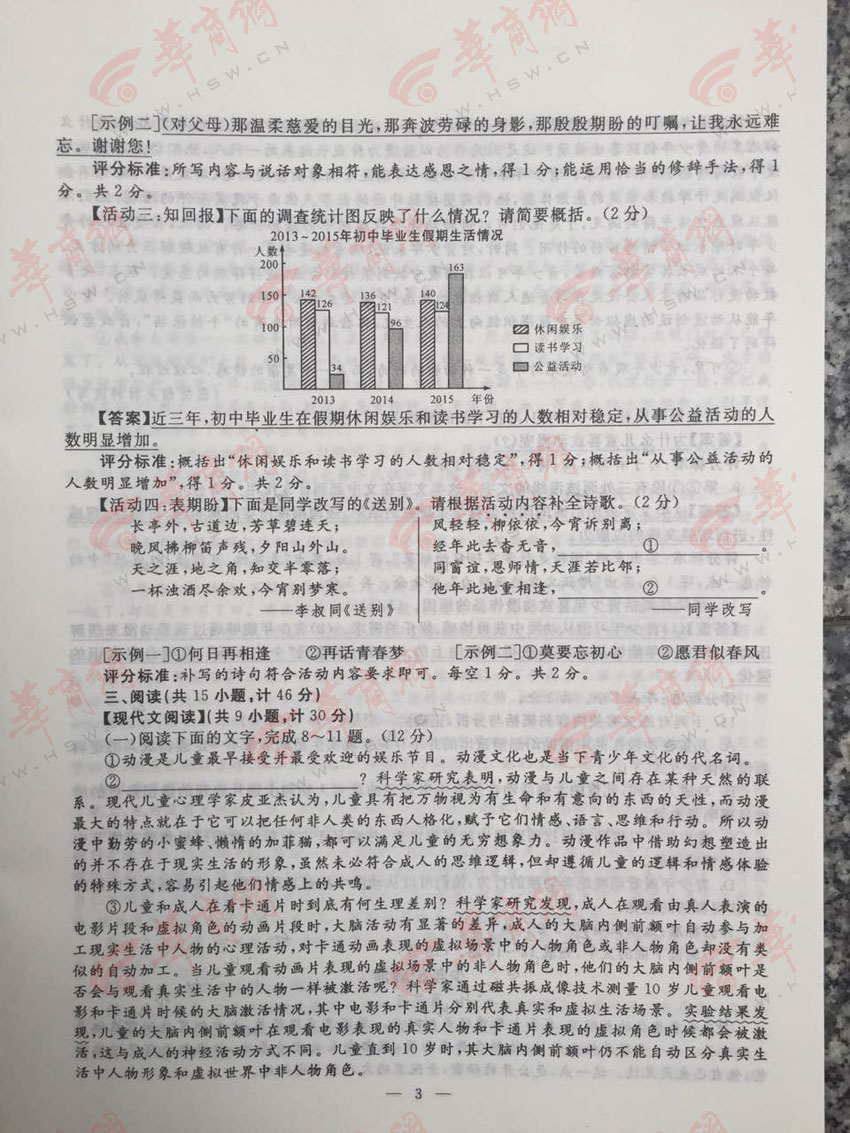 [示例二](对父母)那温柔慈爱的目光,那奔波劳碌的身影,那殷殷期盼的叮嘱,让我永远难
忘。谢谢您!
评分标准:所写内容与说话对象相符,能表达感恩之情,得1分;能运用恰当的修辞手法,得1
分。共2分。
【活动三:知回报】下面的调查统计图反映了什么情况?请简要概括。(2分)
2013~2015年初中毕业生假期生活情况
人数
200
150
100
50
142
126
34
136
121
96
140
124
163
休闲娱乐
读书学习
公益活动
2013 2014 2015 年份
【答案】近三年,初中毕业生在假期休闲娱乐和读书学习的人数相对稳定,从事公益活动的人
数明显增加。
评分标准:概括出“休闲娱乐和读书学习的人数相对稳定”,得1分;概括出“从事公益活动的
人数明显增加”,得1分。共2分。
【活动四:表期盼】下面是同学改写的《送别》。请根据活动内容补全诗歌。(2分)
长亭外,古道边,芳草碧连天;
晚风拂柳笛声残,夕阳山外山。
天之涯,地之角,知交半零落;
一杯浊酒尽余欢,今宵别梦寒。
——李叔同《送别》
风轻轻,柳依依,今宵诉别离;
经年此去杳无音,①。
同窗谊,恩师情,天涯若比邻;
他年此地重相逢,②。
——同学改写
[示例一]①何日再相逢 ②再话青春梦 [示例二]①莫要忘初心 ②愿君似春风
评分标准:补写的诗句符合活动内容要求即可。每空1分。共2分。
三、阅读(共15小题,计46分)
【现代文阅读】(共9小题,计30分)
(一)阅读下面的文字,完成8~11题。(12分)
①动漫是儿童最早接受并最受欢迎的娱乐节目。动漫文化也是当下青少年文化的代名词。
②?科学家研究表明,动漫与儿童之间存在某种天然的联
系。现代儿童心理学家皮亚杰认为,儿童具有把万物视为有生命和有意向的东西的天性,而动漫
最大的特点就在于它可以把任何非人类的东西人格化,赋予它们情感、语言、思维和行动。所以动
漫中勤劳的小蜜蜂、懒惰的加菲猫,都可以满足儿童的无穷想象力。动漫作品中借助幻想塑造出
的并不存在于现实生活的形象,虽然未必符合成人的思维逻辑,但却遵循儿童的逻辑和情感体验
的特殊方式,容易引起他们情感上的共鸣。
③儿童和成人在看卡通片时到底有何生理差别?科学家研究发现,成人在观看由真人表演的
电影片段和虚拟角色的动画片段时,大脑活动有显著的差异,成人的大脑内侧前额叶自动参与加
工现实生活中人物的心理活动,对卡通动画表现的虚拟场景中的人物角色或非人物角色却没有类
似的自动加工。当儿童观看动画片表现的虚拟场景中的非人物角色时,他们的大脑内侧前额叶是
否会与观看真实生活中的人物一样被激活呢?科学家通过磁共振成像技术测量10岁儿童观看电
影和卡通片时候的大脑激活情况,其中电影和卡通片分别代表真实和虚拟生活场景。实验结果发
现,儿童的大脑内侧前额叶在观看电影表现的真实人物和卡通片表现的虚拟角色时候都会被激
活,这与成人的神经活动方式不同。儿童直到10岁时,其大脑内侧前额叶仍不能自动区分真实生
活中人物形象和虚拟世界中非人物角色。
— 3 —
華商網
WWW.HSW.CN